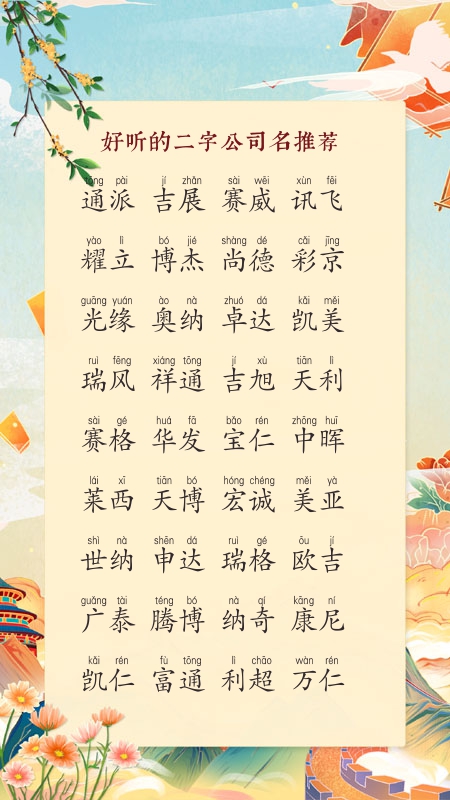 好听的二字公司名推荐
tōng pài jí zhǎn sài wēi xùn fēi
通派 吉展 赛威 讯飞
yào lì bó jié shàng dé cǎi jīng
耀立 博杰 尚德 彩京
guāng yuán ào nà zhuó dá kǎi měi
光缘 奥纳 卓达 凯美
ruì fēng xiáng tōng jí xù tiān lì
瑞风 祥通 吉旭 天利
sài gé huá fā bǎo rén zhōng huī
赛格 华发 宝仁 中晖
lái xī tiān bó hóng chéng měi yà
莱西 天博 宏诚 美亚
shì nà shēn dá ruì gé ōu jí
世纳 申达 瑞格 欧吉
guǎng tài téng bó nà qí kāng ní
广泰 腾博 纳奇 康尼
kǎi rén fù tōng lì chāo wàn rén
凯仁 富通 利超 万仁